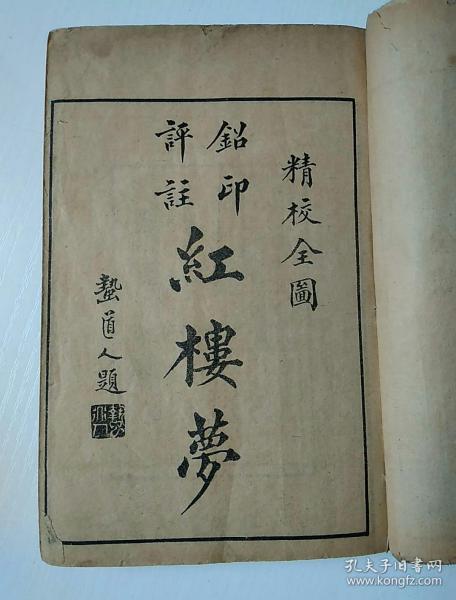 精校全圖
鉛印
評註
紅樓夢
蟄道人題
孔夫子旧书网
www.kongfz.com